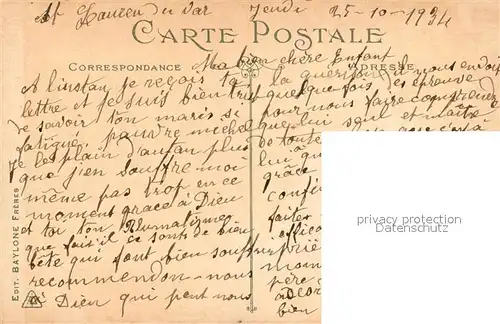 St Laurent du Var Jeudi 25-10-1934
CARTE POSTALE
CORRESPONDANCE
ADRESSE
Ma bien chère Enfant
A l'instan je reçois ta
lettre et je suis bien triste
de savoir ton maris si
fatigué. pauvre michel
je les plain d'autan plus
que j'en souffre moi
même pas trop en ce
moment grace à Dieu
et toi ton Rhumatisme
que fais'il ce sons de bien
bête qui font bien souffrir
recommendon-nous
à Dieu qui peut nous
la guérison il nous en doi
quelque fois, des épreuve
pour nous faire comprendre
que lui seul et maitr
de toute
lui qu
grâce
confi
faiter
efficac
prié
mon
père
ador
bien
privacy protection
EDIT. BAYLONE FRÈRES